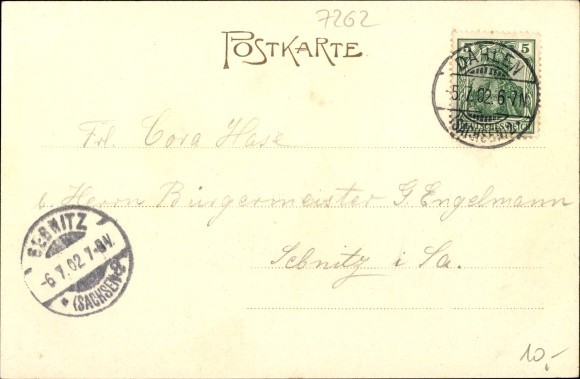 7262
POSTKARTE
5 5
DAHLEN
-5.7.02.6-7N.
(SACHSEN)
Frl. Cora Hase
b. Herrn Bürgermeister G. Engelmann
Sebnitz i. Sa.
SEBNITZ
-6.7.02.7-8V.
* (SACHSEN)
10,-